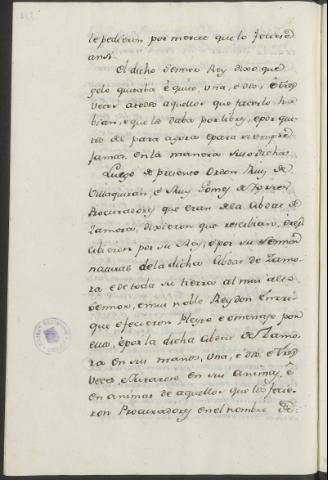 le pedieron por merced que lo ficiese
ansi.
El dicho Sennor Rey dixo que
gelo quitaba é quitó, una, é dos, é tres
veces a todos aquellos que facerlo ha-
bian, é que lo daba por libres, é por qui-
tos del para agora é para siempre
jamas en la manera suso dicha.
Luego de presente Ordon Ruiz de
Villaquiran, é Ruy Gomez de Torres
Procuradores que eran de la Cibdat de
Zamora, dixieron que rescibian, é res-
cibieron por su Rey, é por su Sennor
natural de la dicha Cibdat de Zamo-
ra é de toda su tierra al mui alto
Sennor, é mui noble Rey don Enrri-
que é ficieron Pleyto é omenage por
ellos, é por la dicha Cibdat de Zamo-
ra en sus manos, una, é dos, é tres
veces é juraron en sus animas, é
en animas de aquellos que los ficie-
ron Procuradores en el nombre de: